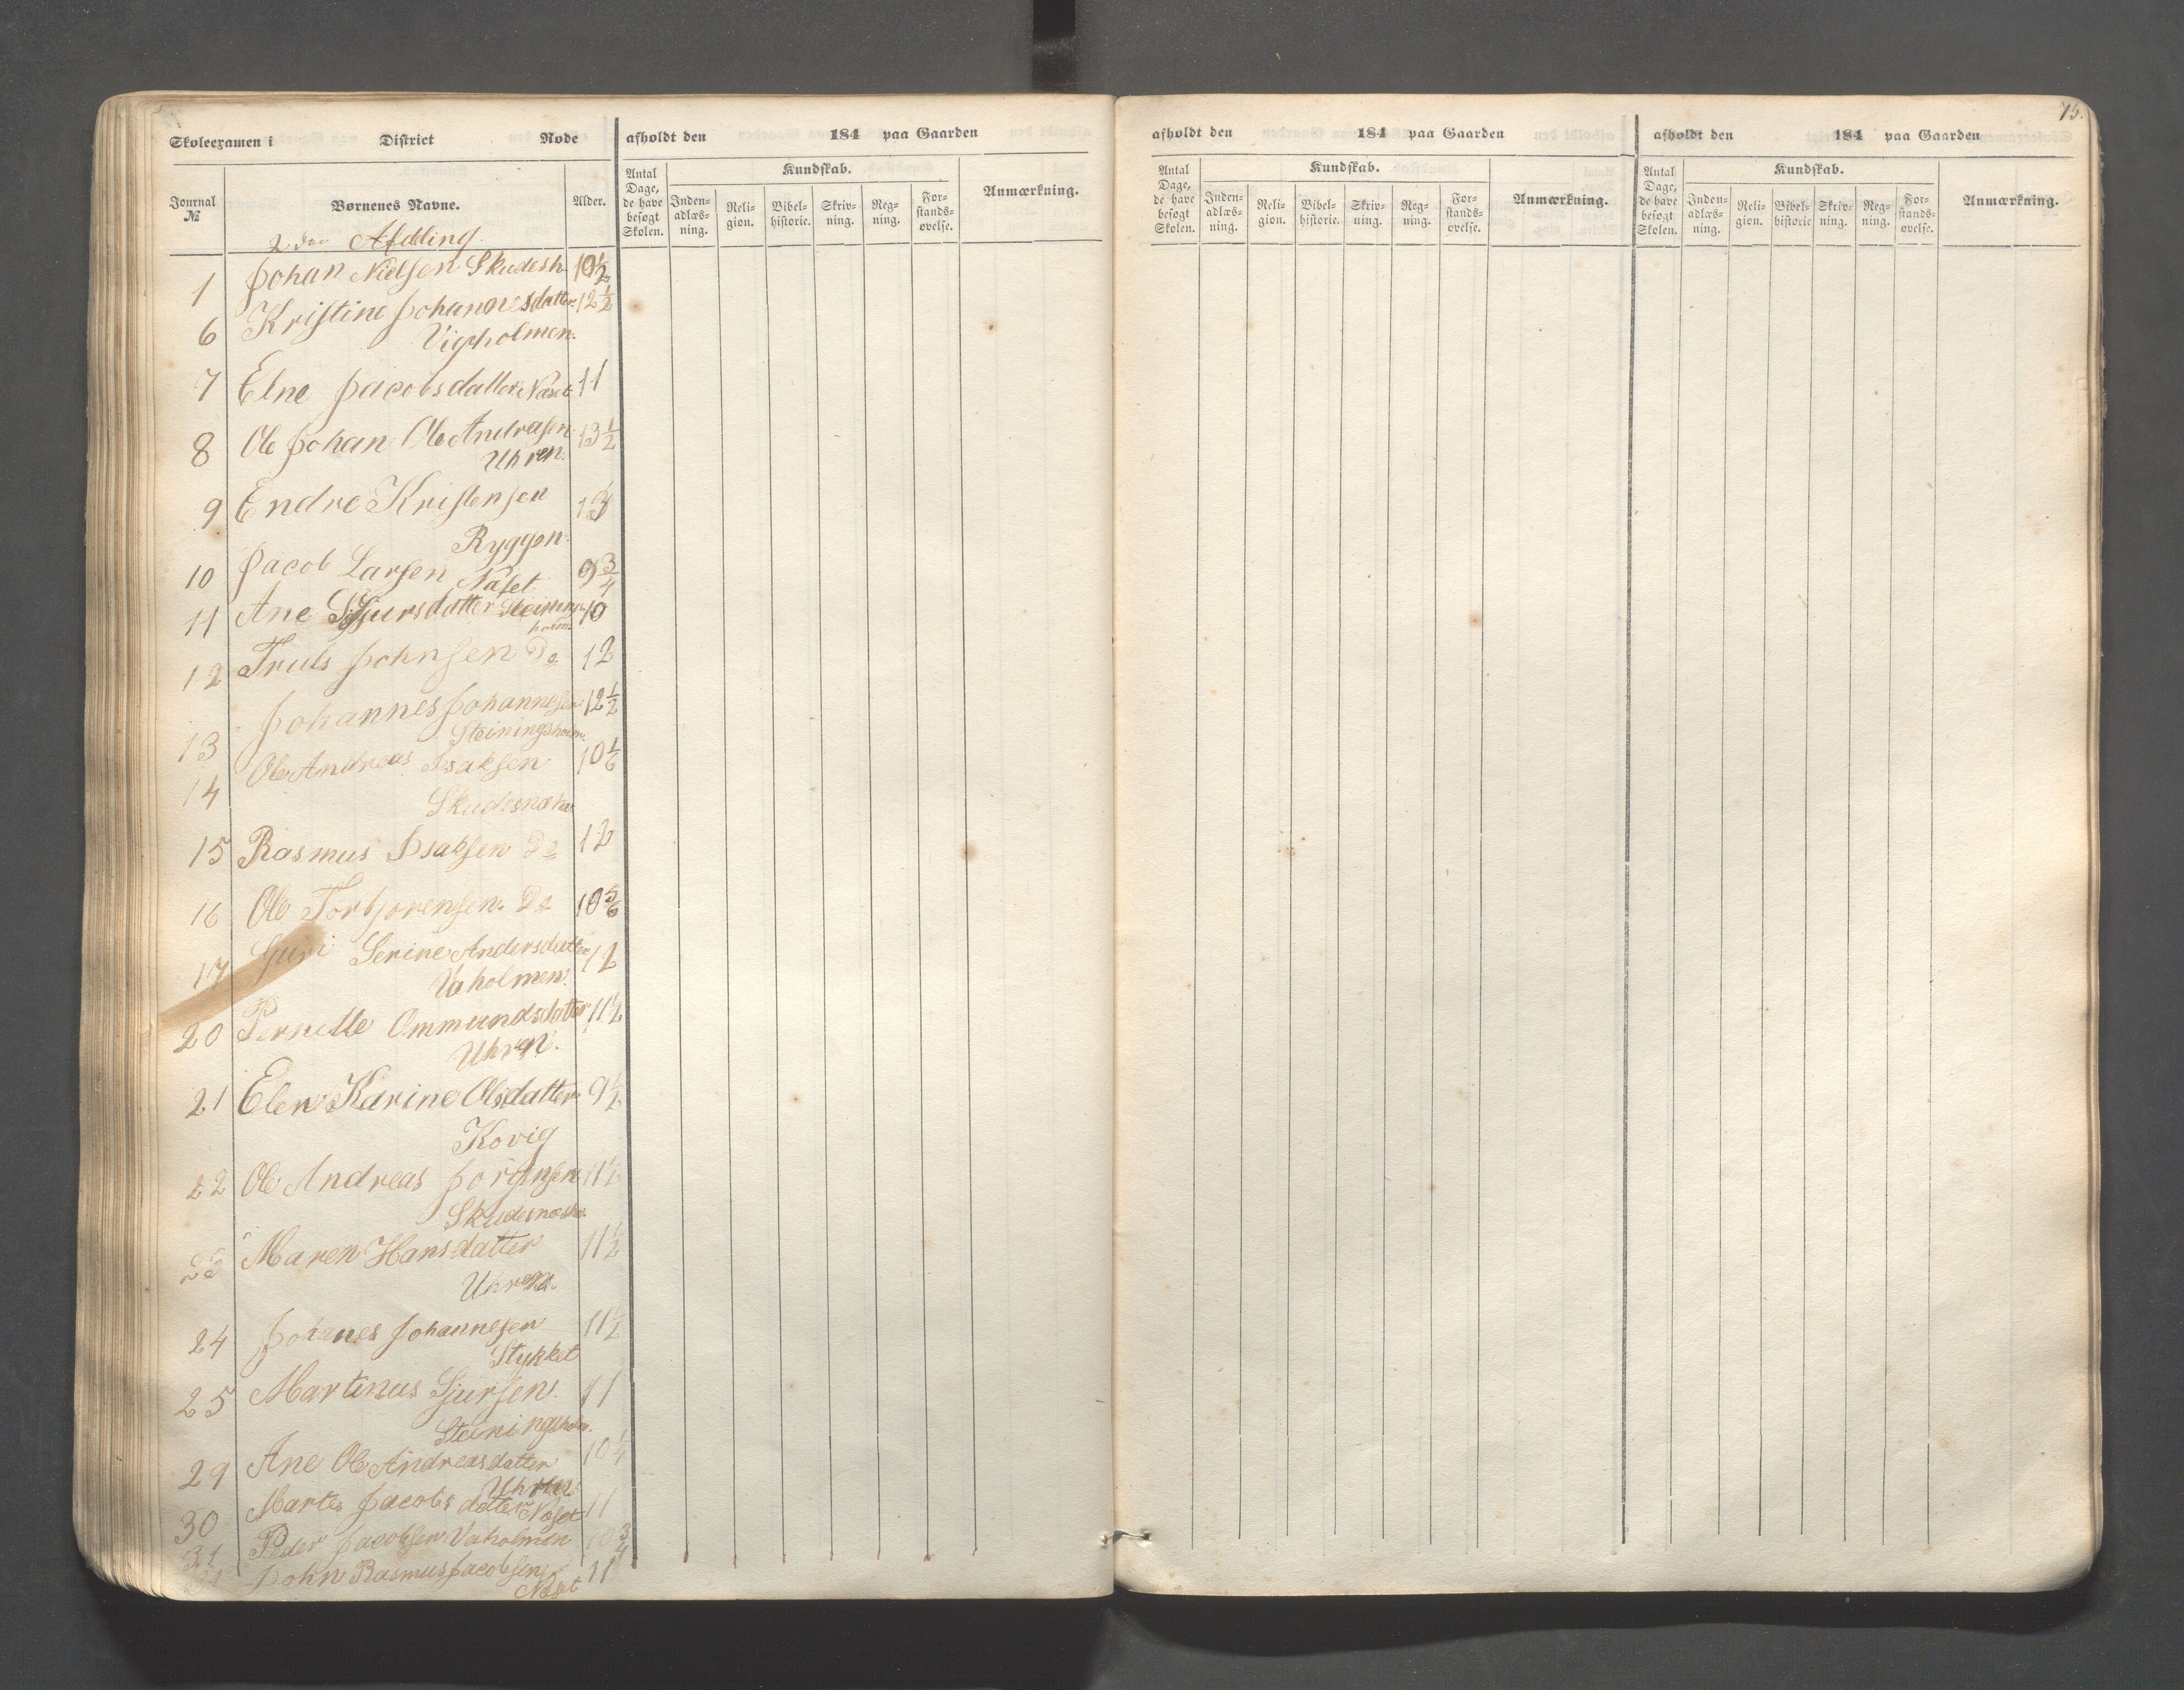 75.
Skoleexamen i District Rode
afholdt den 184 paa Gaarden
afholdt den 184 paa Gaarden
afholdt den 184 paa Gaarden
Journal № Børnenes Navne. Alder. Antal Dage, de have besøgt Skolen. Kundskab. Inden-adlæs-ning. Reli-gion. Bibel-historie. Skriv-ning. Reg-ning. For-stands-øvelse. Anmærkning.
Antal Dage, de have besøgt Skolen. Kundskab. Inden-adlæs-ning. Reli-gion. Bibel-historie. Skriv-ning. Reg-ning. For-stands-øvelse. Anmærkning.
Antal Dage, de have besøgt Skolen. Kundskab. Inden-adlæs-ning. Reli-gion. Bibel-historie Skriv-ning. Reg-ning. For-stands-øvelse. Anmærkning.
2den Afdeling.
1 Johan Nielsen Skudesh 10½
6 Kristine Johannesdatter 12½
Vigholmen.
7 Elne Jacobsdatter Næset 11
8 Ole Johan Ole Andreasen 13½
Uhren.
9 Endre Kristensen
Ryggen.
10 Jacob Larsen Næset 9¾
11 Ane Sjursdatter Steinings- 10
holm
12 Truls Johnsen Do 12
13 Johannes Johannesen 12½
Steiningsholm.
14 Ole Andreas Isaksen 10⅙
Skudesnæha
15 Rasmus Isaksen Do 12
16 Ole Torbjorensen Do 10⅚
17 Guri Serine Andersdatter 12
Vaholmen.
20 Pernelle Ommundsdatter 11½
Uhren.
21 Elen Karine Olsdatter 9½
Kovig
22 Ole Andreas Jørgensen 11½
Skudesnæsha.
23 Maren Hansdatter 11½
Uhren.
24 Johanes Johannesen 11½
Stykket
25 Martinus Sjursen 11
Steiningsholm.
29 Ane Ole Andreasdatter 10¼
Uhren
30 Marte Jacobsdatter Næset 11
31 Peder Jacobsen Vaholmen 10¾
John Rasmus Jacobsen 11
Næset